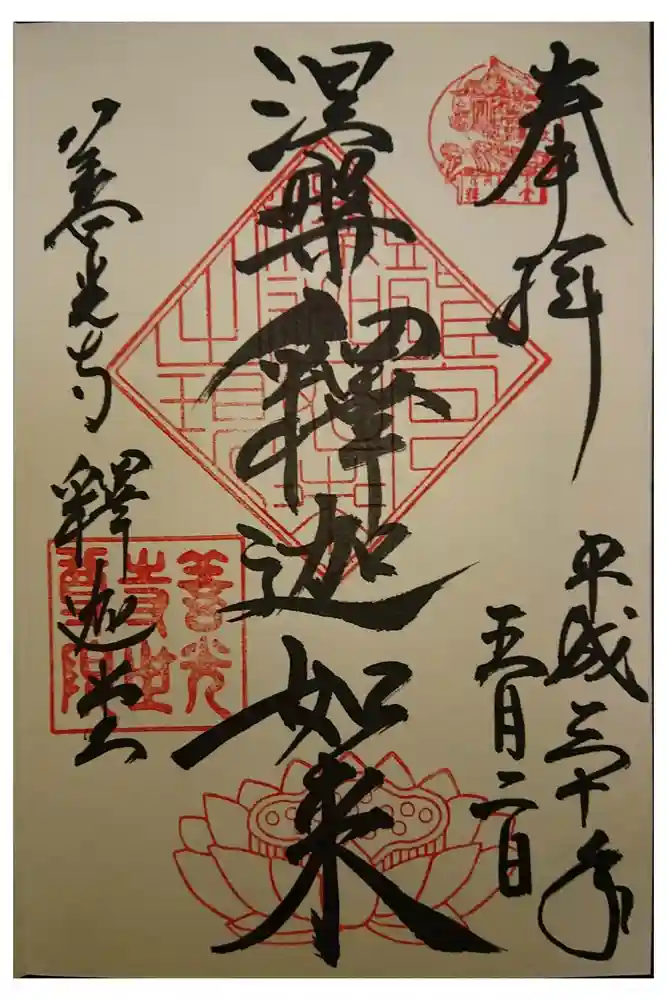 奉拝
平成三十年
五月二日
涅槃釋迦如来
善光寺 釋迦堂
善光
寺世
尊院